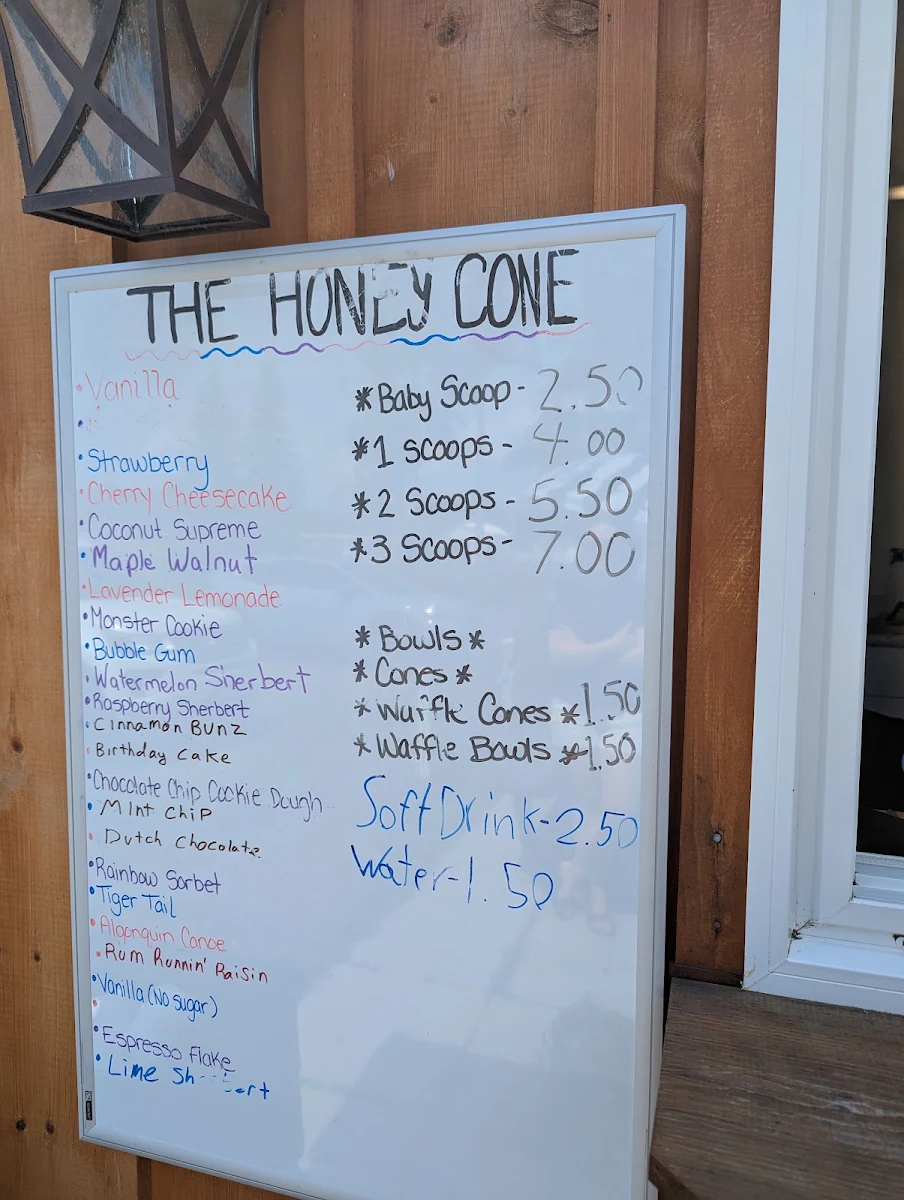 THE HONEY CONE
• Vanilla
•
• Strawberry
• Cherry Cheesecake
• Coconut Supreme
• Maple Walnut
• Lavender Lemonade
• Monster Cookie
• Bubble Gum
• Watermelon Sherbert
• Raspberry Sherbert
• Cinnamon Bunz
• Birthday Cake
• Chocolate Chip Cookie Dough
• Mint Chip
• Dutch Chocolate
• Rainbow Sorbet
• Tiger Tail
• Algonquin Canoe
• Rum Runnin' Raisin
• Vanilla (No sugar)
•
• Espresso Flake
• Lime
* Baby Scoop - 2.50
* 1 scoops - 4.00
* 2 Scoops - 5.50
* 3 Scoops - 7.00
* Bowls *
* Cones *
* Waffle Cones * 1.50
* Waffle Bowls * 1.50
Soft Drink - 2.50
Water - 1.50